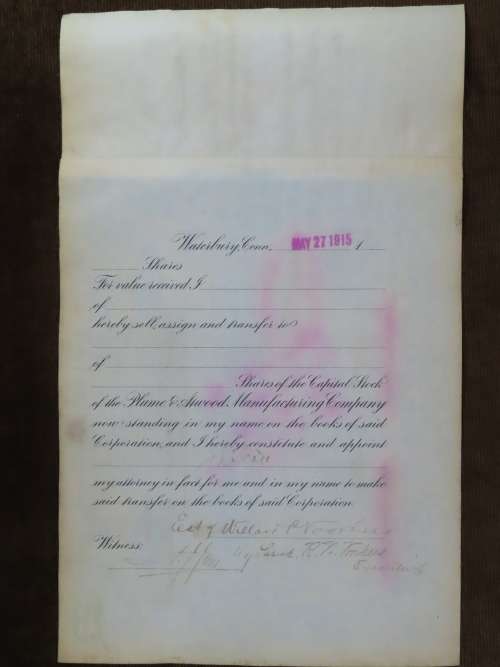 Waterbury, Conn. MAY 27 1915 1
Shares
For value received I
of
hereby sell, assign and transfer to
of
Shares of the Capital Stock
of the Plume & Atwood Manufacturing Company
now standing in my name on the books of said
Corporation, and I hereby constitute and appoint
my attorney in fact for me and in my name to make
said transfer on the books of said Corporation.
Est of Willard P
Witness by Sarah